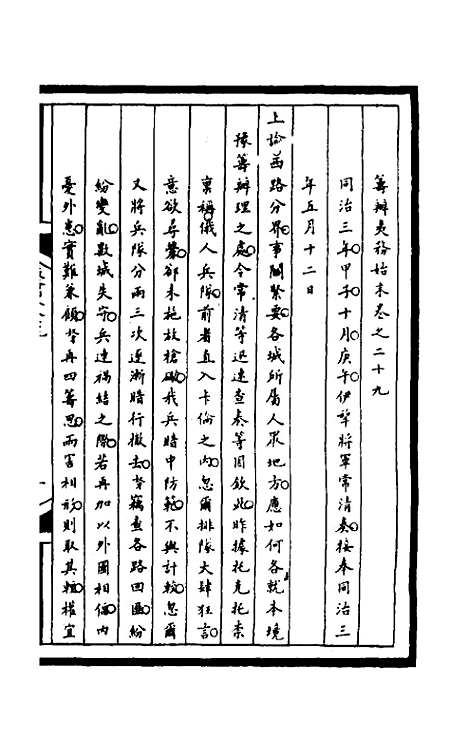 籌辦夷務始末卷之二十九
同治三年甲子十月庚午伊犂將軍常清奏接奉同治三
年五月十二日
上諭西路分界事關緊要各城所屬人眾地方應如何各就本境
豫籌辦理之處令常清等迅速查奏等因欽此昨據托克托柰
稟稱俄人兵隊前者直入卡倫之內忽爾排隊大肆狂言
意欲尋釁卻未施放槍礮我兵暗中防範不與計較忽爾
又將兵隊分兩三次逐漸暗行撤去等竊查各路回匪紛
紛變亂數城失守兵連禍結之際若再加以外國相偪內
憂外患實難兼顧等再四籌思兩害相形則取其輕權宜